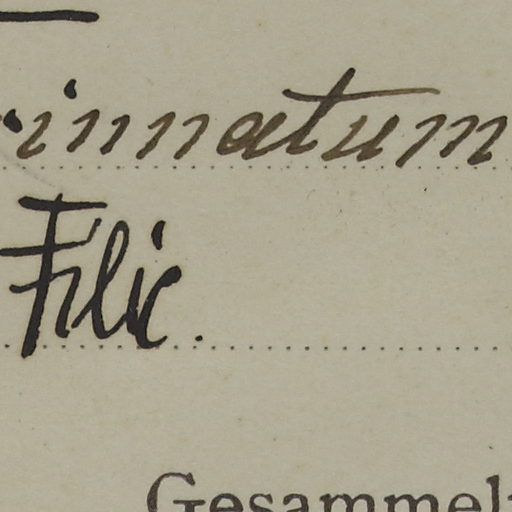 innatum
Filic.
Gesammel